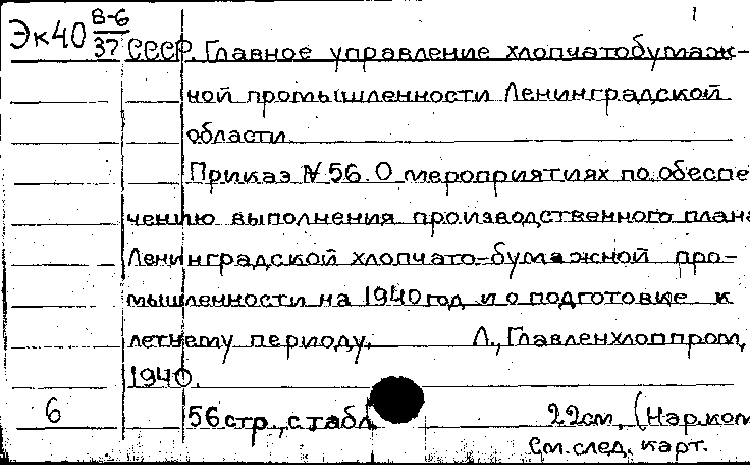 Эк40 В-6/37 1
СССР. Главное управление хлопчатобумаж-
ной промышленности Ленинградской
области
Приказ № 56. О мероприятиях по обеспе
чению выполнения производственного плана
Ленинградской хлопчато-бумажной про-
мышленности на 1940 год и о подготовке к
летнему периоду. Л., Главленхлоппром,
1940.
6 56 стр., с табл. 22см. (Нар.ком
См. след. карт.